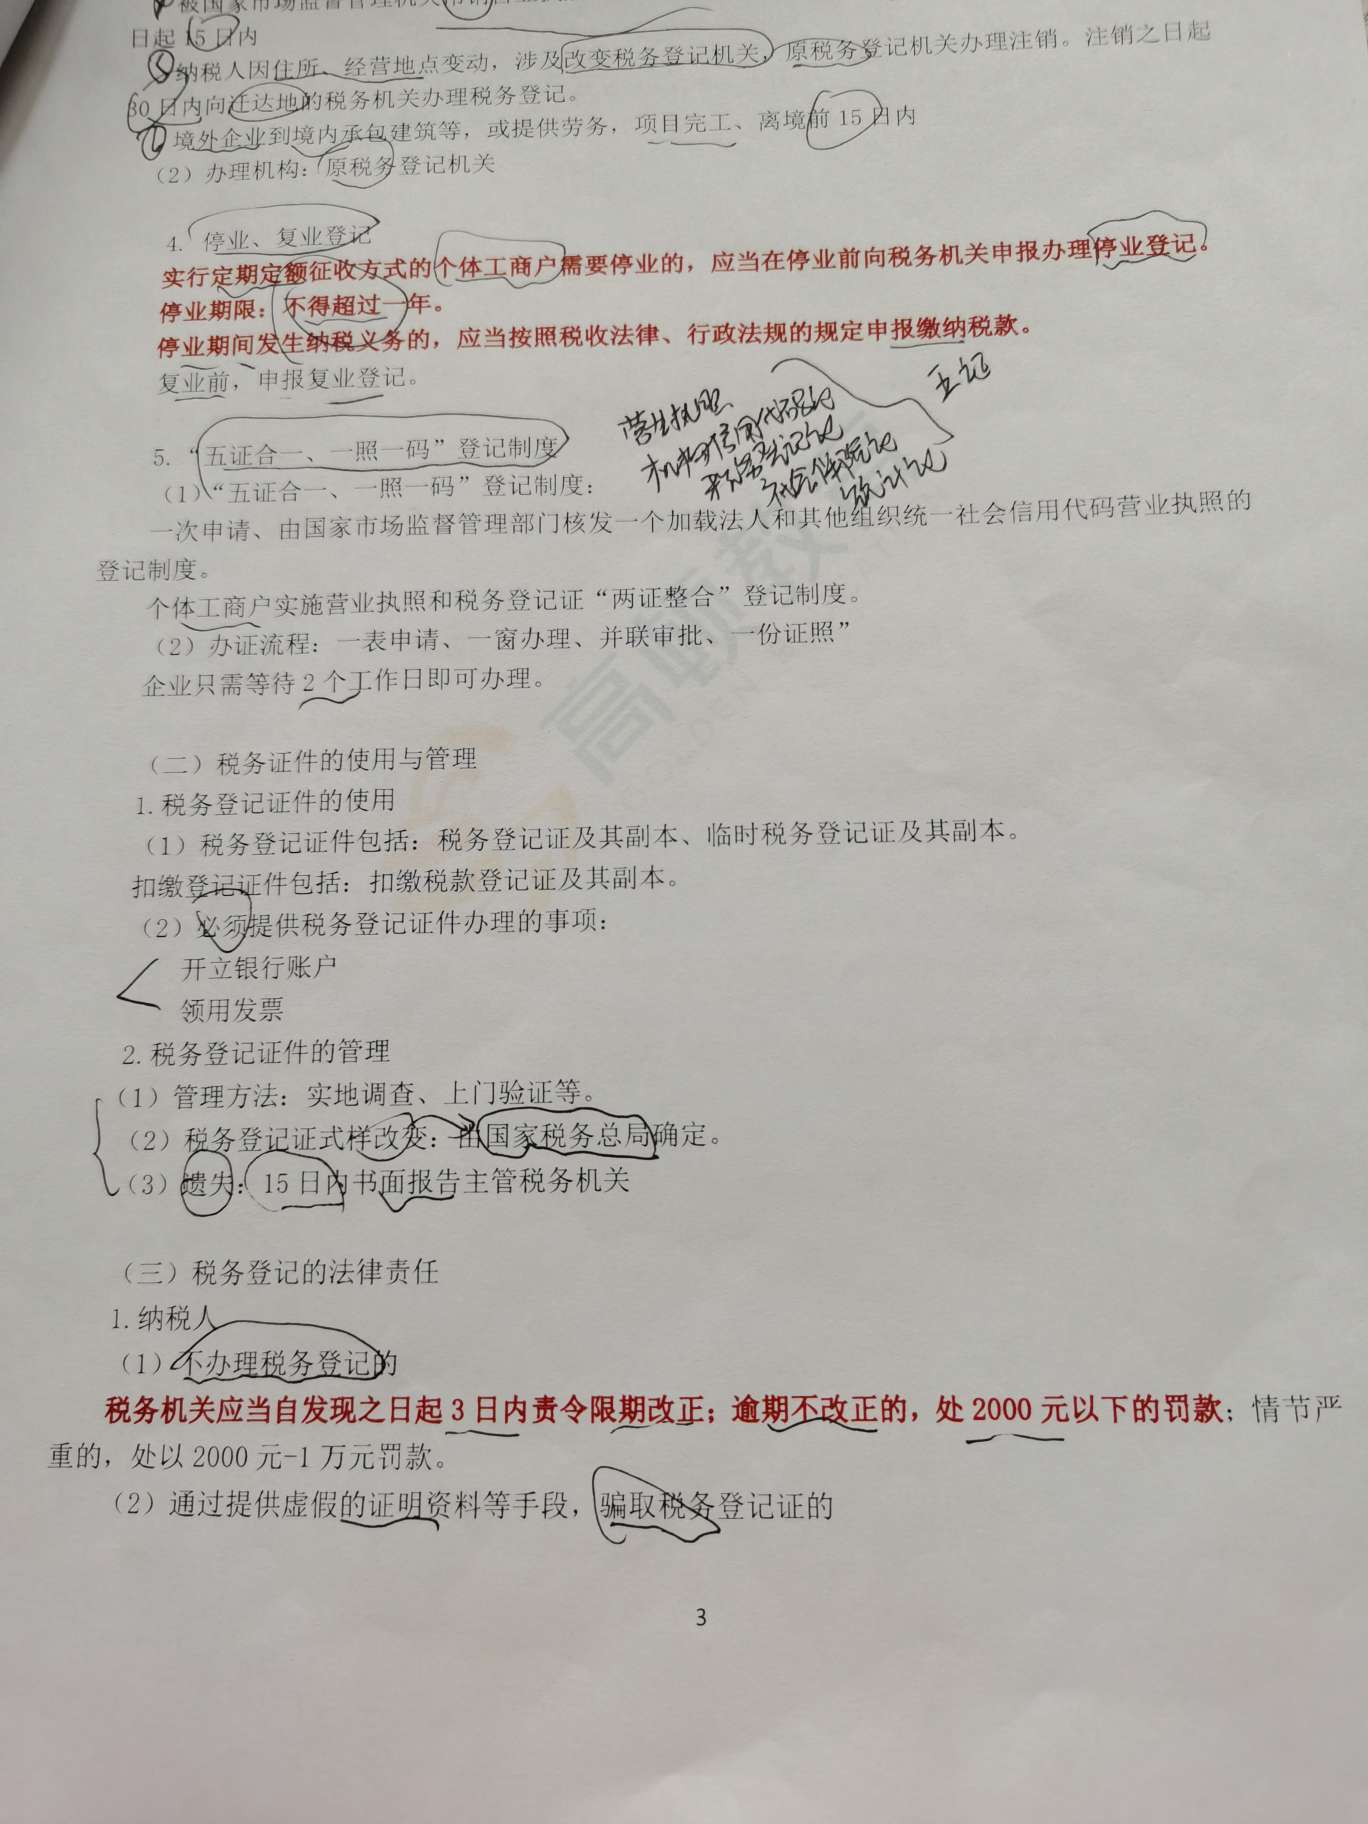 被国家市场监督管理机关吊销营业执
日起 15 日内
纳税人因住所、经营地点变动，涉及改变税务登记机关，原税务登记机关办理注销。注销之日起
30 日内向迁达地的税务机关办理税务登记。
境外企业到境内承包建筑等，或提供劳务，项目完工、离境前 15 日内
（2）办理机构：原税务登记机关
4. 停业、复业登记
实行定期定额征收方式的个体工商户需要停业的，应当在停业前向税务机关申报办理停业登记。
停业期限：不得超过一年。
停业期间发生纳税义务的，应当按照税收法律、行政法规的规定申报缴纳税款。
复业前，申报复业登记。
五证
营业执照
机构信用代码证
税务登记证
社会保险证
统计证
5. “五证合一、一照一码”登记制度
（1）“五证合一、一照一码”登记制度：
一次申请、由国家市场监督管理部门核发一个加载法人和其他组织统一社会信用代码营业执照的
登记制度。
个体工商户实施营业执照和税务登记证“两证整合”登记制度。
（2）办证流程：一表申请、一窗办理、并联审批、一份证照”
企业只需等待 2 个工作日即可办理。
高顿教
（二）税务证件的使用与管理
1. 税务登记证件的使用
（1）税务登记证件包括：税务登记证及其副本、临时税务登记证及其副本。
扣缴登记证件包括：扣缴税款登记证及其副本。
（2）必须提供税务登记证件办理的事项：
开立银行账户
领用发票
2. 税务登记证件的管理
（1）管理方法：实地调查、上门验证等。
（2）税务登记证式样改变：由国家税务总局确定。
（3）遗失：15 日内书面报告主管税务机关
（三）税务登记的法律责任
1. 纳税人
（1）不办理税务登记的
税务机关应当自发现之日起 3 日内责令限期改正；逾期不改正的，处 2000 元以下的罚款；情节严
重的，处以 2000 元-1 万元罚款。
（2）通过提供虚假的证明资料等手段，骗取税务登记证的
3